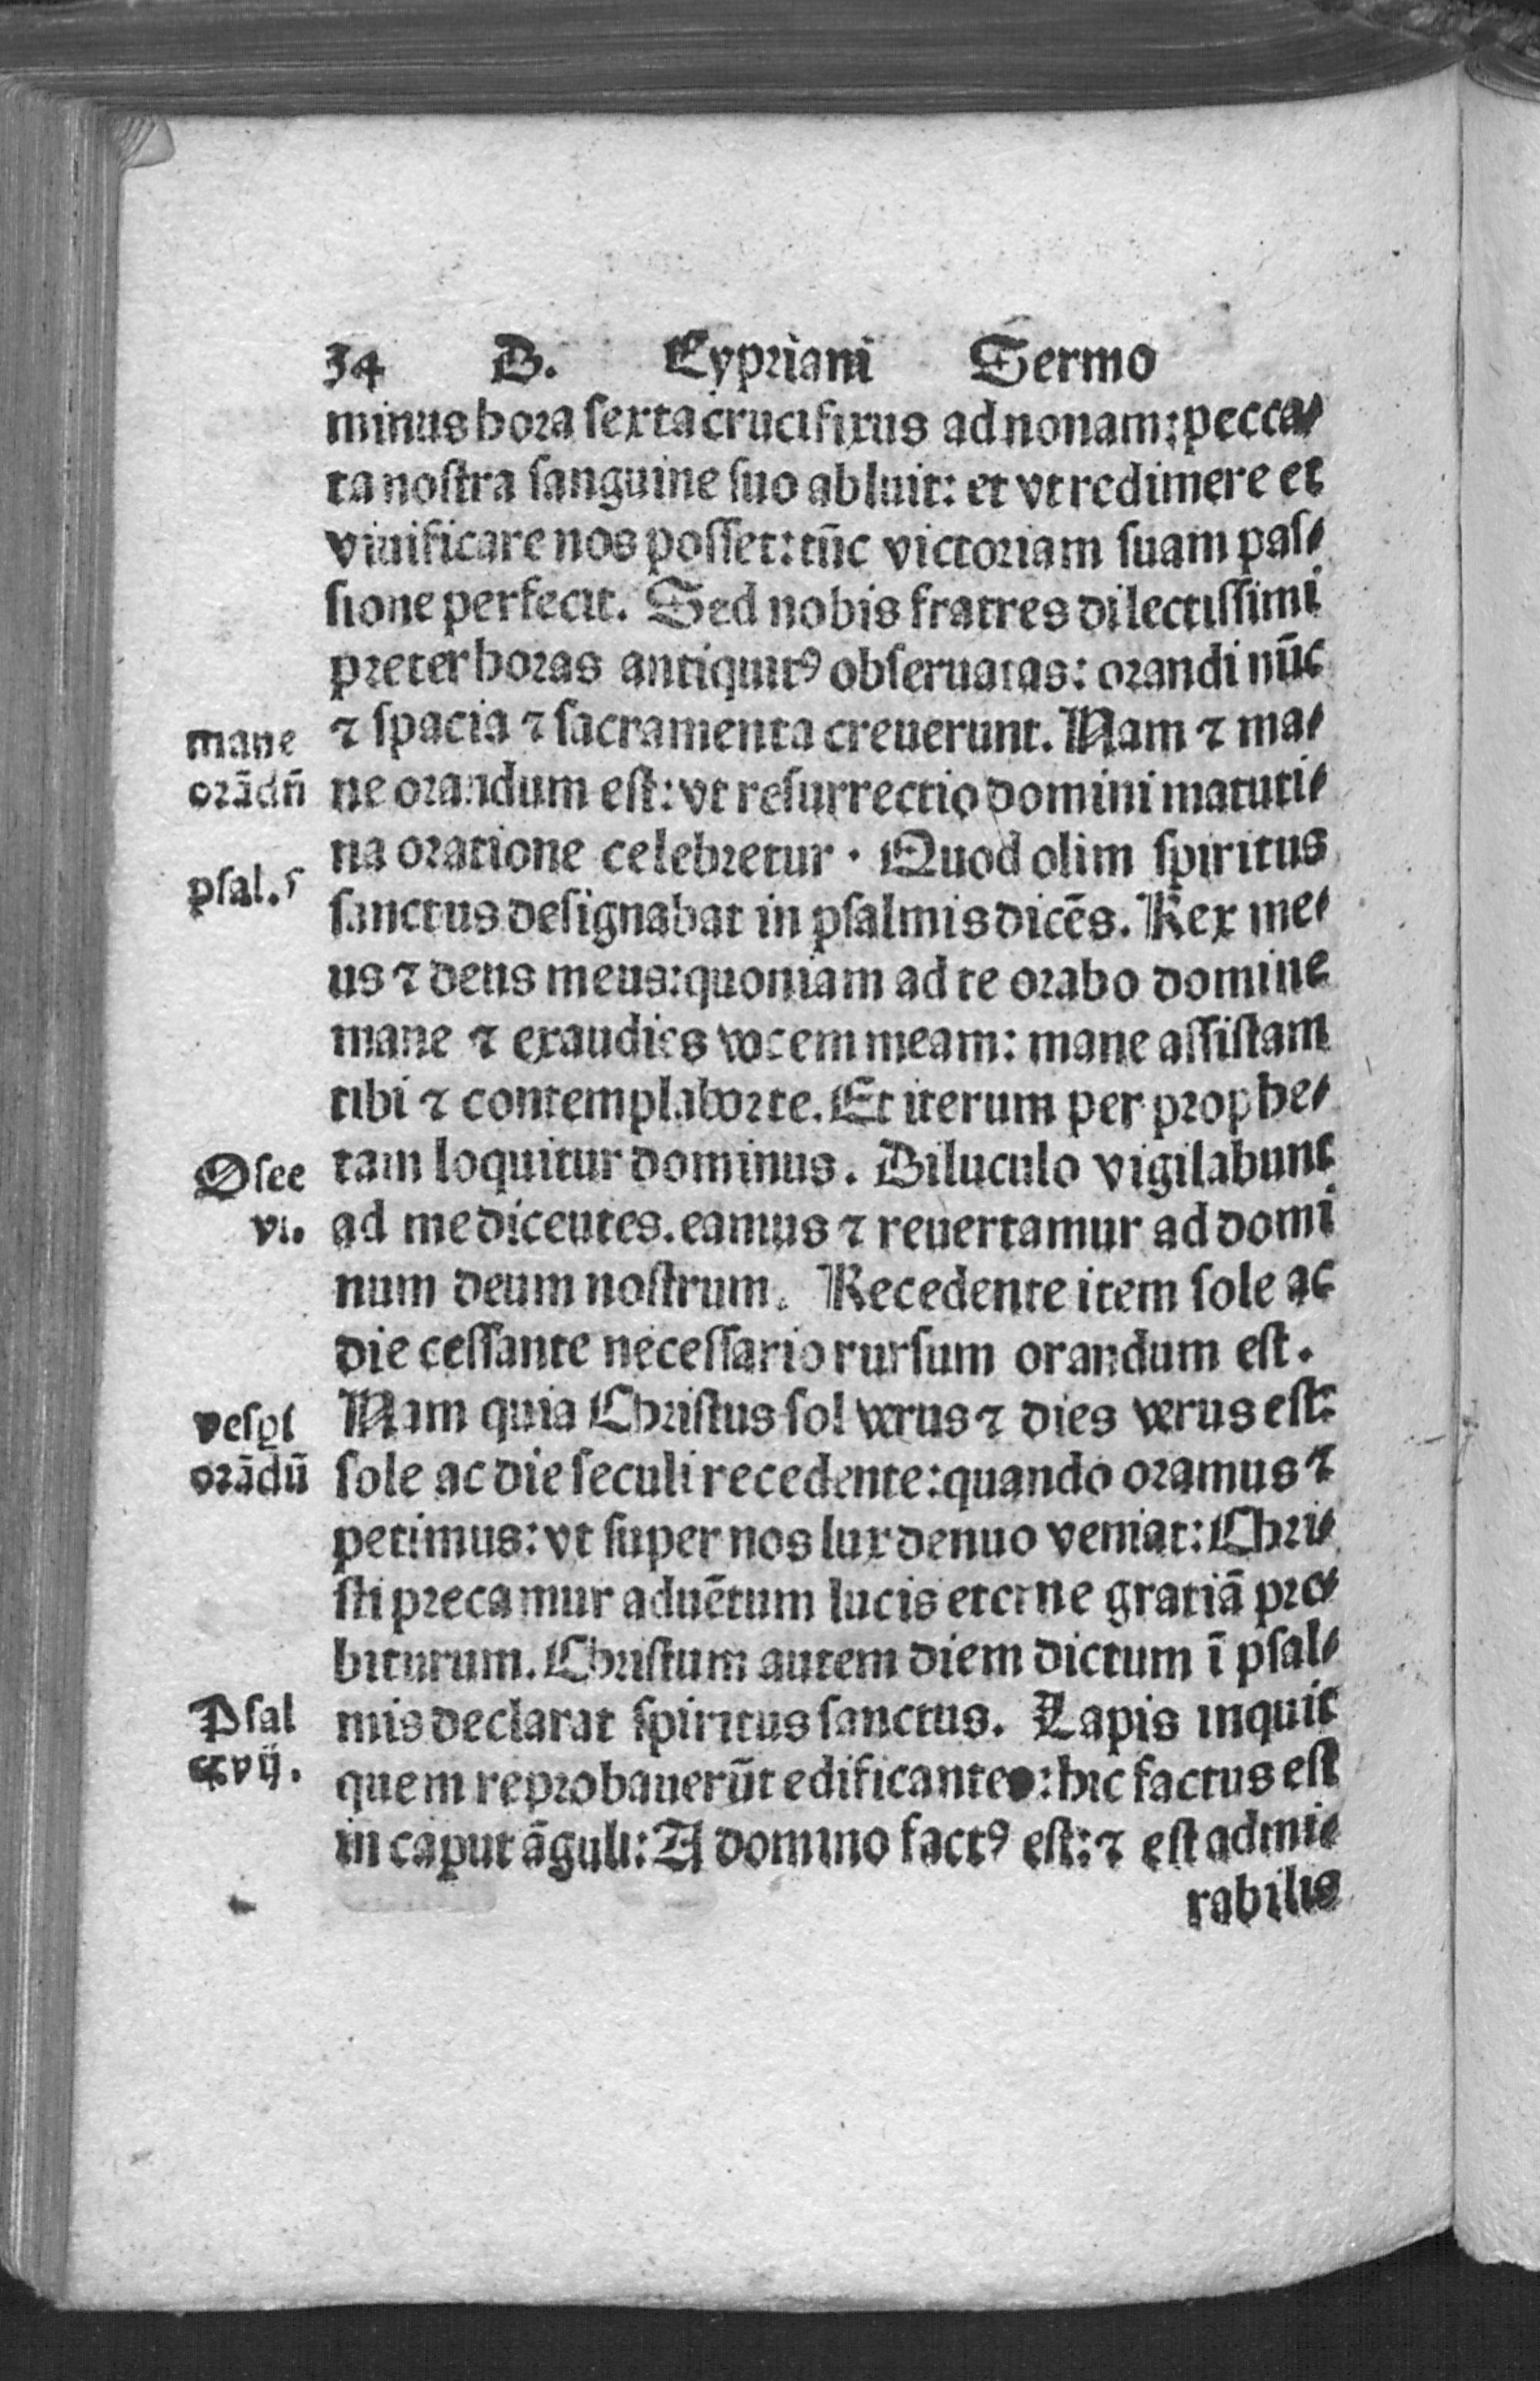 34 B. Cypriani Sermo
minus hora sexta crucifixus ad nonam: pecca⸗
ta nostra sanguine suo abluit: et vt redimere et
viuificare nos posset: tūc victoriam suam pas⸗
sione perfecit. Sed nobis fratres dilectissimi
preter horas antiquitꝰ obseruatas: orandi nūc
⁊ spacia ⁊ sacramenta creuerunt. Nam ⁊ ma⸗
mane
orādū
ne orandum est: vt resurrectio domini matuti⸗
na oratione celebretur. Quod olim spiritus
psal. 5
sanctus designabat in psalmis dicēs. Rex me⸗
us ⁊ deus meus: quoniam ad te orabo domine
mane ⁊ exaudies vocem meam: mane assistam
tibi ⁊ contemplabor te. Et iterum per prophe⸗
tam loquitur dominus. Diluculo vigilabunt
Osee
vi.
ad me dicentes. eamus ⁊ reuertamur ad domi
num deum nostrum. Recedente item sole ac
die cessante necessario rursum orandum est.
Nam quia Christus sol verus ⁊ dies verus est:
vesꝑi
orādū
sole ac die seculi recedente: quando oramus ⁊
petimus: vt super nos lux denuo veniat: Chri⸗
sti precamur aduētum lucis eterne gratiā pre⸗
biturum. Christum autem diem dictum ī psal⸗
Psal
cxvij.
mis declarat spiritus sanctus. Lapis inquit
quem reprobauerūt edificantes: hic factus est
in caput āguli: A domino factꝰ est: ⁊ est admi⸗
rabilis